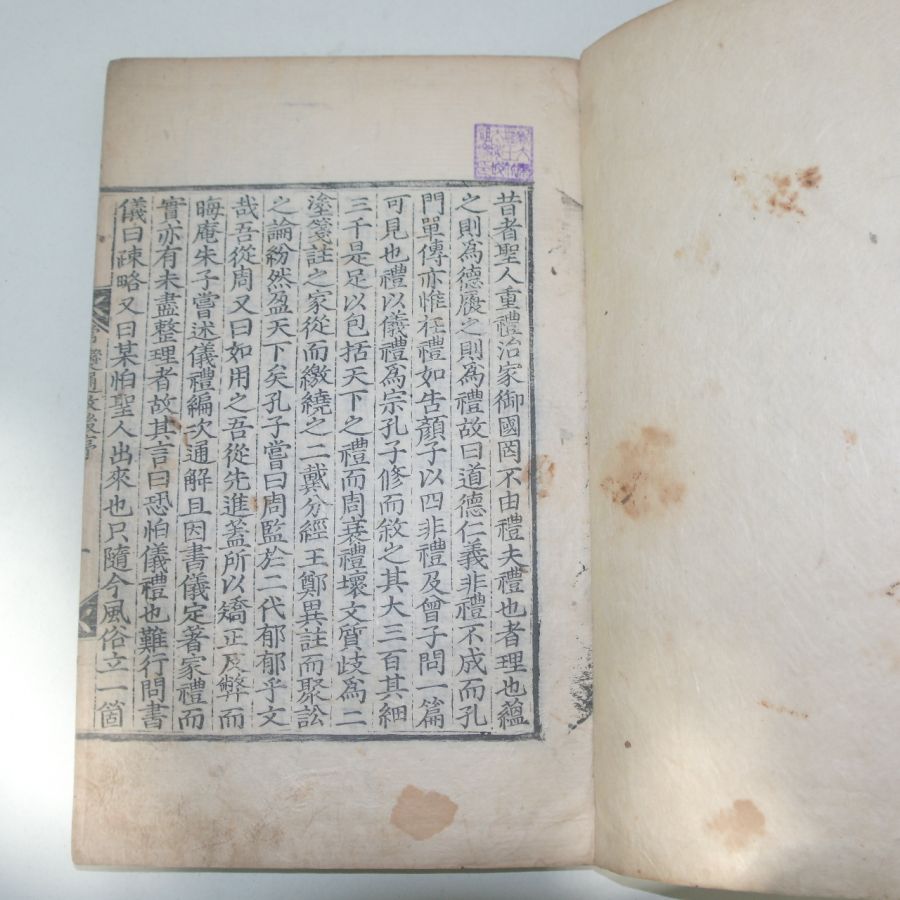 昔者聖人重禮治家御國罔不由禮夫禮也者理也蘊
之則爲德履之則爲禮故曰道德仁義非禮不成而孔
門單傳亦惟在禮如告顏子以四非禮及曾子問一篇
可見也禮以儀禮爲宗孔子修而敘之其大三百其細
三千是足以包括天下之禮而周衰禮壞文質歧爲二
塗箋註之家從而繳繞之二戴分經王鄭異註而聚訟
之論紛然盈天下矣孔子嘗曰周監於二代郁郁乎文
哉吾從周又曰如用之吾從先進蓋所以矯正及弊而
晦庵朱子嘗述儀禮編次通解且因書儀定著家禮而
實亦有未盡整理者故其言曰恐怕儀禮也難行問書
儀曰疎略又曰某怕聖人出來也只隨今風俗立一箇
常變通攷後序